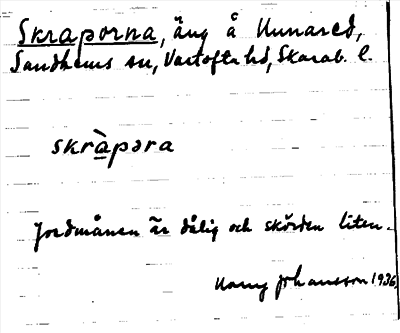 Skraporna, äng å Unnared,
Sandhems sn, Vartofta hd, Skarab. l.
skràpəra
Jordmånen är dålig och skörden liten.
Harry Johansson 1936.